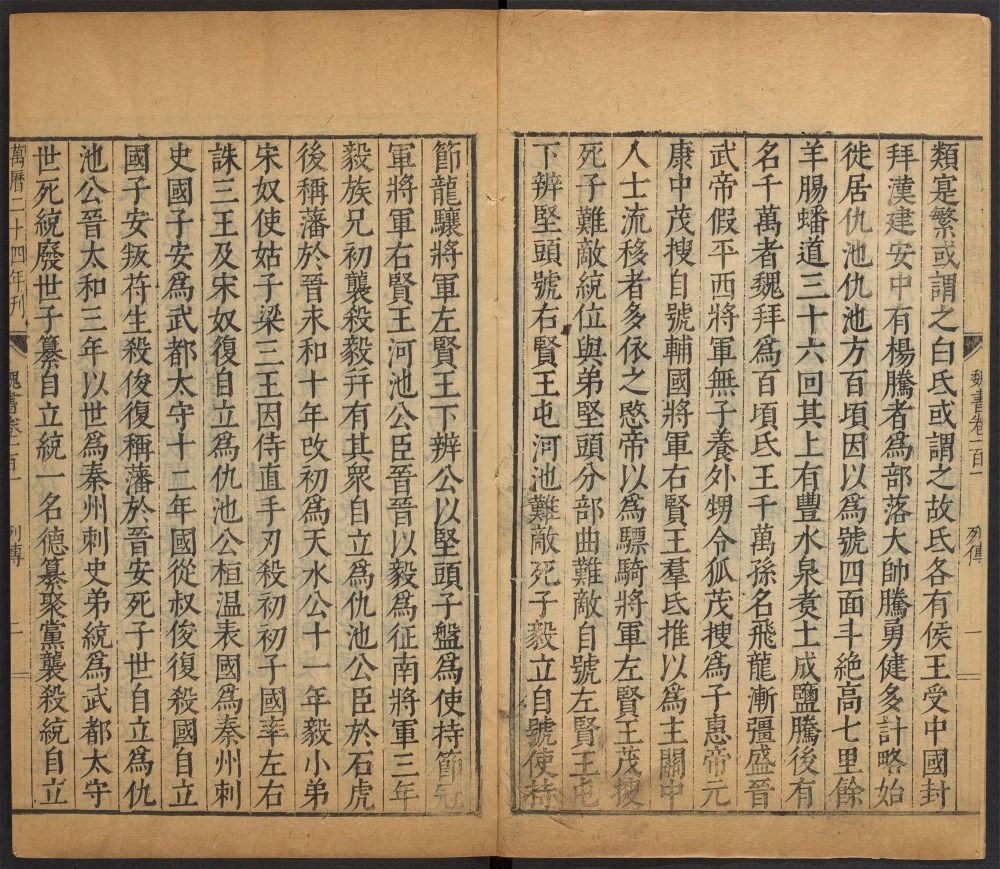 魏書卷一百一 列傳 一
類寔繁或謂之白氐或謂之故氐各有侯王受中國封
拜漢建安中有楊騰者爲部落大帥騰勇健多計略始
徙居仇池仇池方百頃因以爲號四面斗絶高七里餘
羊腸蟠道三十六回其上有豐水泉煮土成鹽騰後有
名千萬者魏拜爲百頃氐王千萬孫名飛龍漸彊盛晉
武帝假平西將軍無子養外甥令狐茂搜爲子惠帝元
康中茂搜自號輔國將軍右賢王羣氐推以爲主關中
人士流移者多依之愍帝以爲驃騎將軍左賢王茂搜
死子難敵統位與弟堅頭分部曲難敵自號左賢王屯
下辨堅頭號右賢王屯河池難敵死子毅立自號使持
節龍驤將軍左賢王下辨公以堅頭子盤爲使持節冠
軍將軍右賢王河池公臣晉晉以毅爲征南將軍三年
毅族兄初襲殺毅并有其衆自立爲仇池公臣於石虎
後稱藩於晉永和十年改初爲天水公十一年毅小弟
宋奴使姑子梁三王因侍直手刃殺初初子國率左右
誅三王及宋奴復自立爲仇池公桓温表國爲秦州刺
史國子安爲武都太守十二年國從叔俊復殺國自立
國子安叛苻生殺俊復稱藩於晉安死子世自立爲仇
池公晉太和三年以世爲秦州刺史弟統爲武都太守
世死統廢世子纂自立統一名德纂聚黨襲殺統自立
萬曆二十四年刊 魏書卷一百一 列傳 二